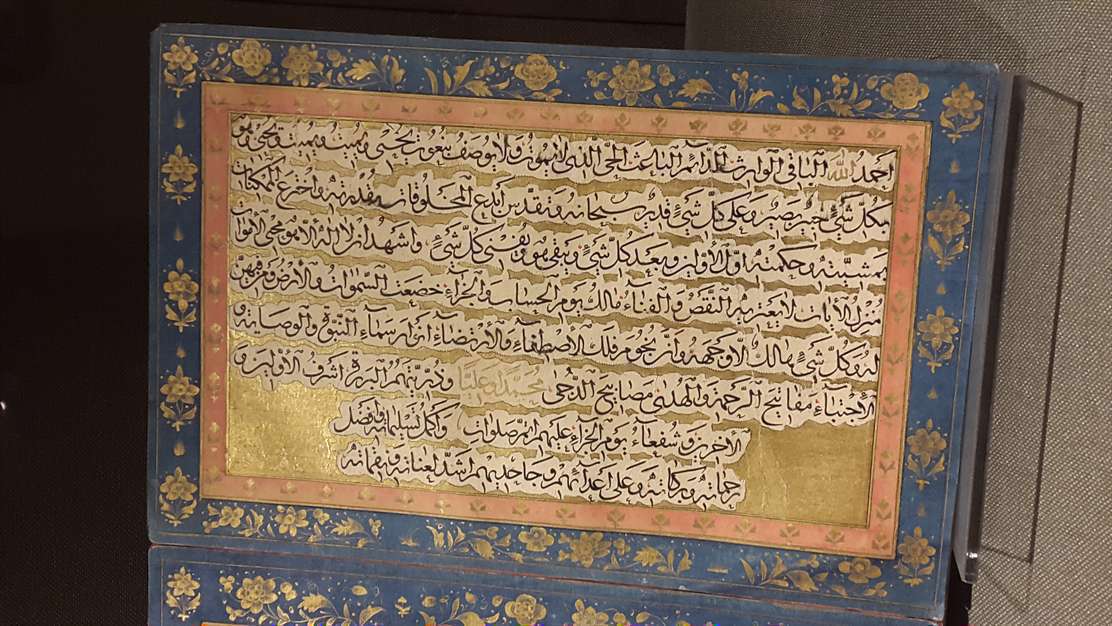 احمد الله الباقي الوارث الدائم الباعث الحي الذي لا يموت ولا يوصف بنعوت يحيي ويميت ويميت ويحيي وهو
بكل شيء خبير بصير وعلى كل شيء قدير سبحانه وتقدس ابدع المخلوقات بقدرته واخترع الممكنات
بمشيته وحكمته اول الأولين وبعد كل شيء ويبقى هو ويفنى كل شيء واشهد ان لا اله الا هو محيي الاموات
منزل الآيات لا يعتريه النقص والفناء مالك يوم الحساب والجزاء خضعت السموات والأرض ومن فيهن
له وكل شيء هالك الا وجهه وان نجوم فلك الاصطفاء والارتضاء سماء النبوة والوصاية و
الاجتباء مفاتيح الرحمة والهدى مصابيح الدجى محمدا وعليا وذريتهم البررة اشرف الأولين و
الآخرين وشفعاء يوم الجزاء عليهم صلوات واكمل تسليماته وافضل
رحماته وبركاته وعلى اعدائهم وجاحديهم اشد لعناته ونقماته